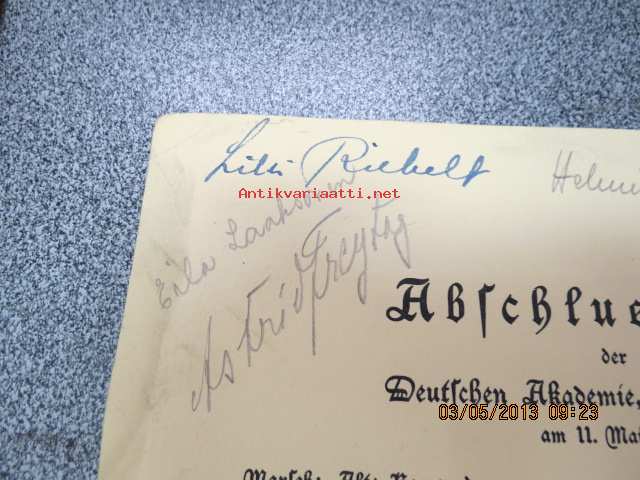 Lilli Riebelt
Antikvariaatti.net
Eila Laaksonen
Astrid Freytag
Abschlue
der
Deutschen Akademie,
03/05/2013 09:23
am 11. Mai